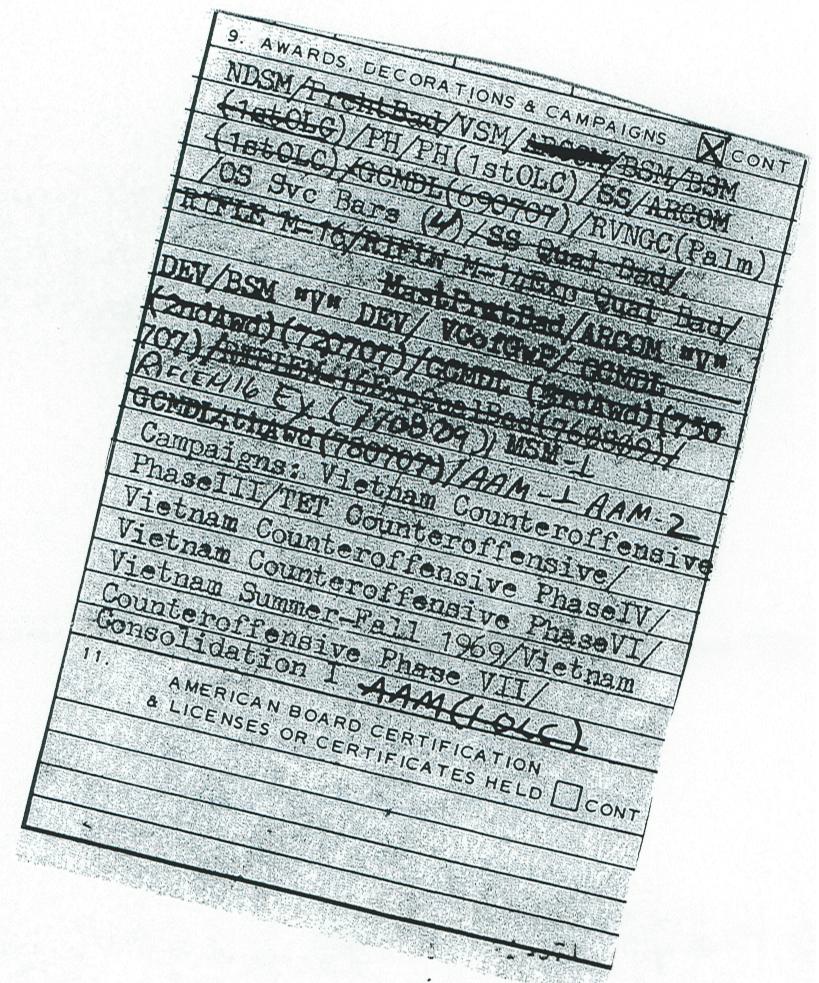 9. AWARDS, DECORATIONS & CAMPAIGNS CONT
NDSM/PrchtBad/VSM/ARCOM/BSM/BSM
(1stOLC)/PH/PH(1stOLC)/SS/ARCOM
(1stOLC)/GCMDL(690707)/RVNGC(Palm)
/OS Svc Bars (4)/SS Qual Bad/
RIFLE M-16/RIFLE M-14Exp Qual Bad/
MastPrchtBad/ARCOM "V"
DEV/BSM "V" DEV/ VCofGwP/ GCMDL
(2ndAwd)(720707)/GCMDL (3rdAwd)(750
707)/
RIFLEM16 EX (770809)/ MSM-1
GCMDL4thAwd(780707)/AAM-1 AAM-2
Campaigns: Vietnam Counteroffensive
PhaseIII/TET Counteroffensive/
Vietnam Counteroffensive PhaseIV/
Vietnam Counteroffensive PhaseVI/
Vietnam Summer-Fall 1969/Vietnam
Counteroffensive Phase VII/
Consolidation I AAM(1OLC)
11.
AMERICAN BOARD CERTIFICATION
& LICENSES OR CERTIFICATES HELD CONT